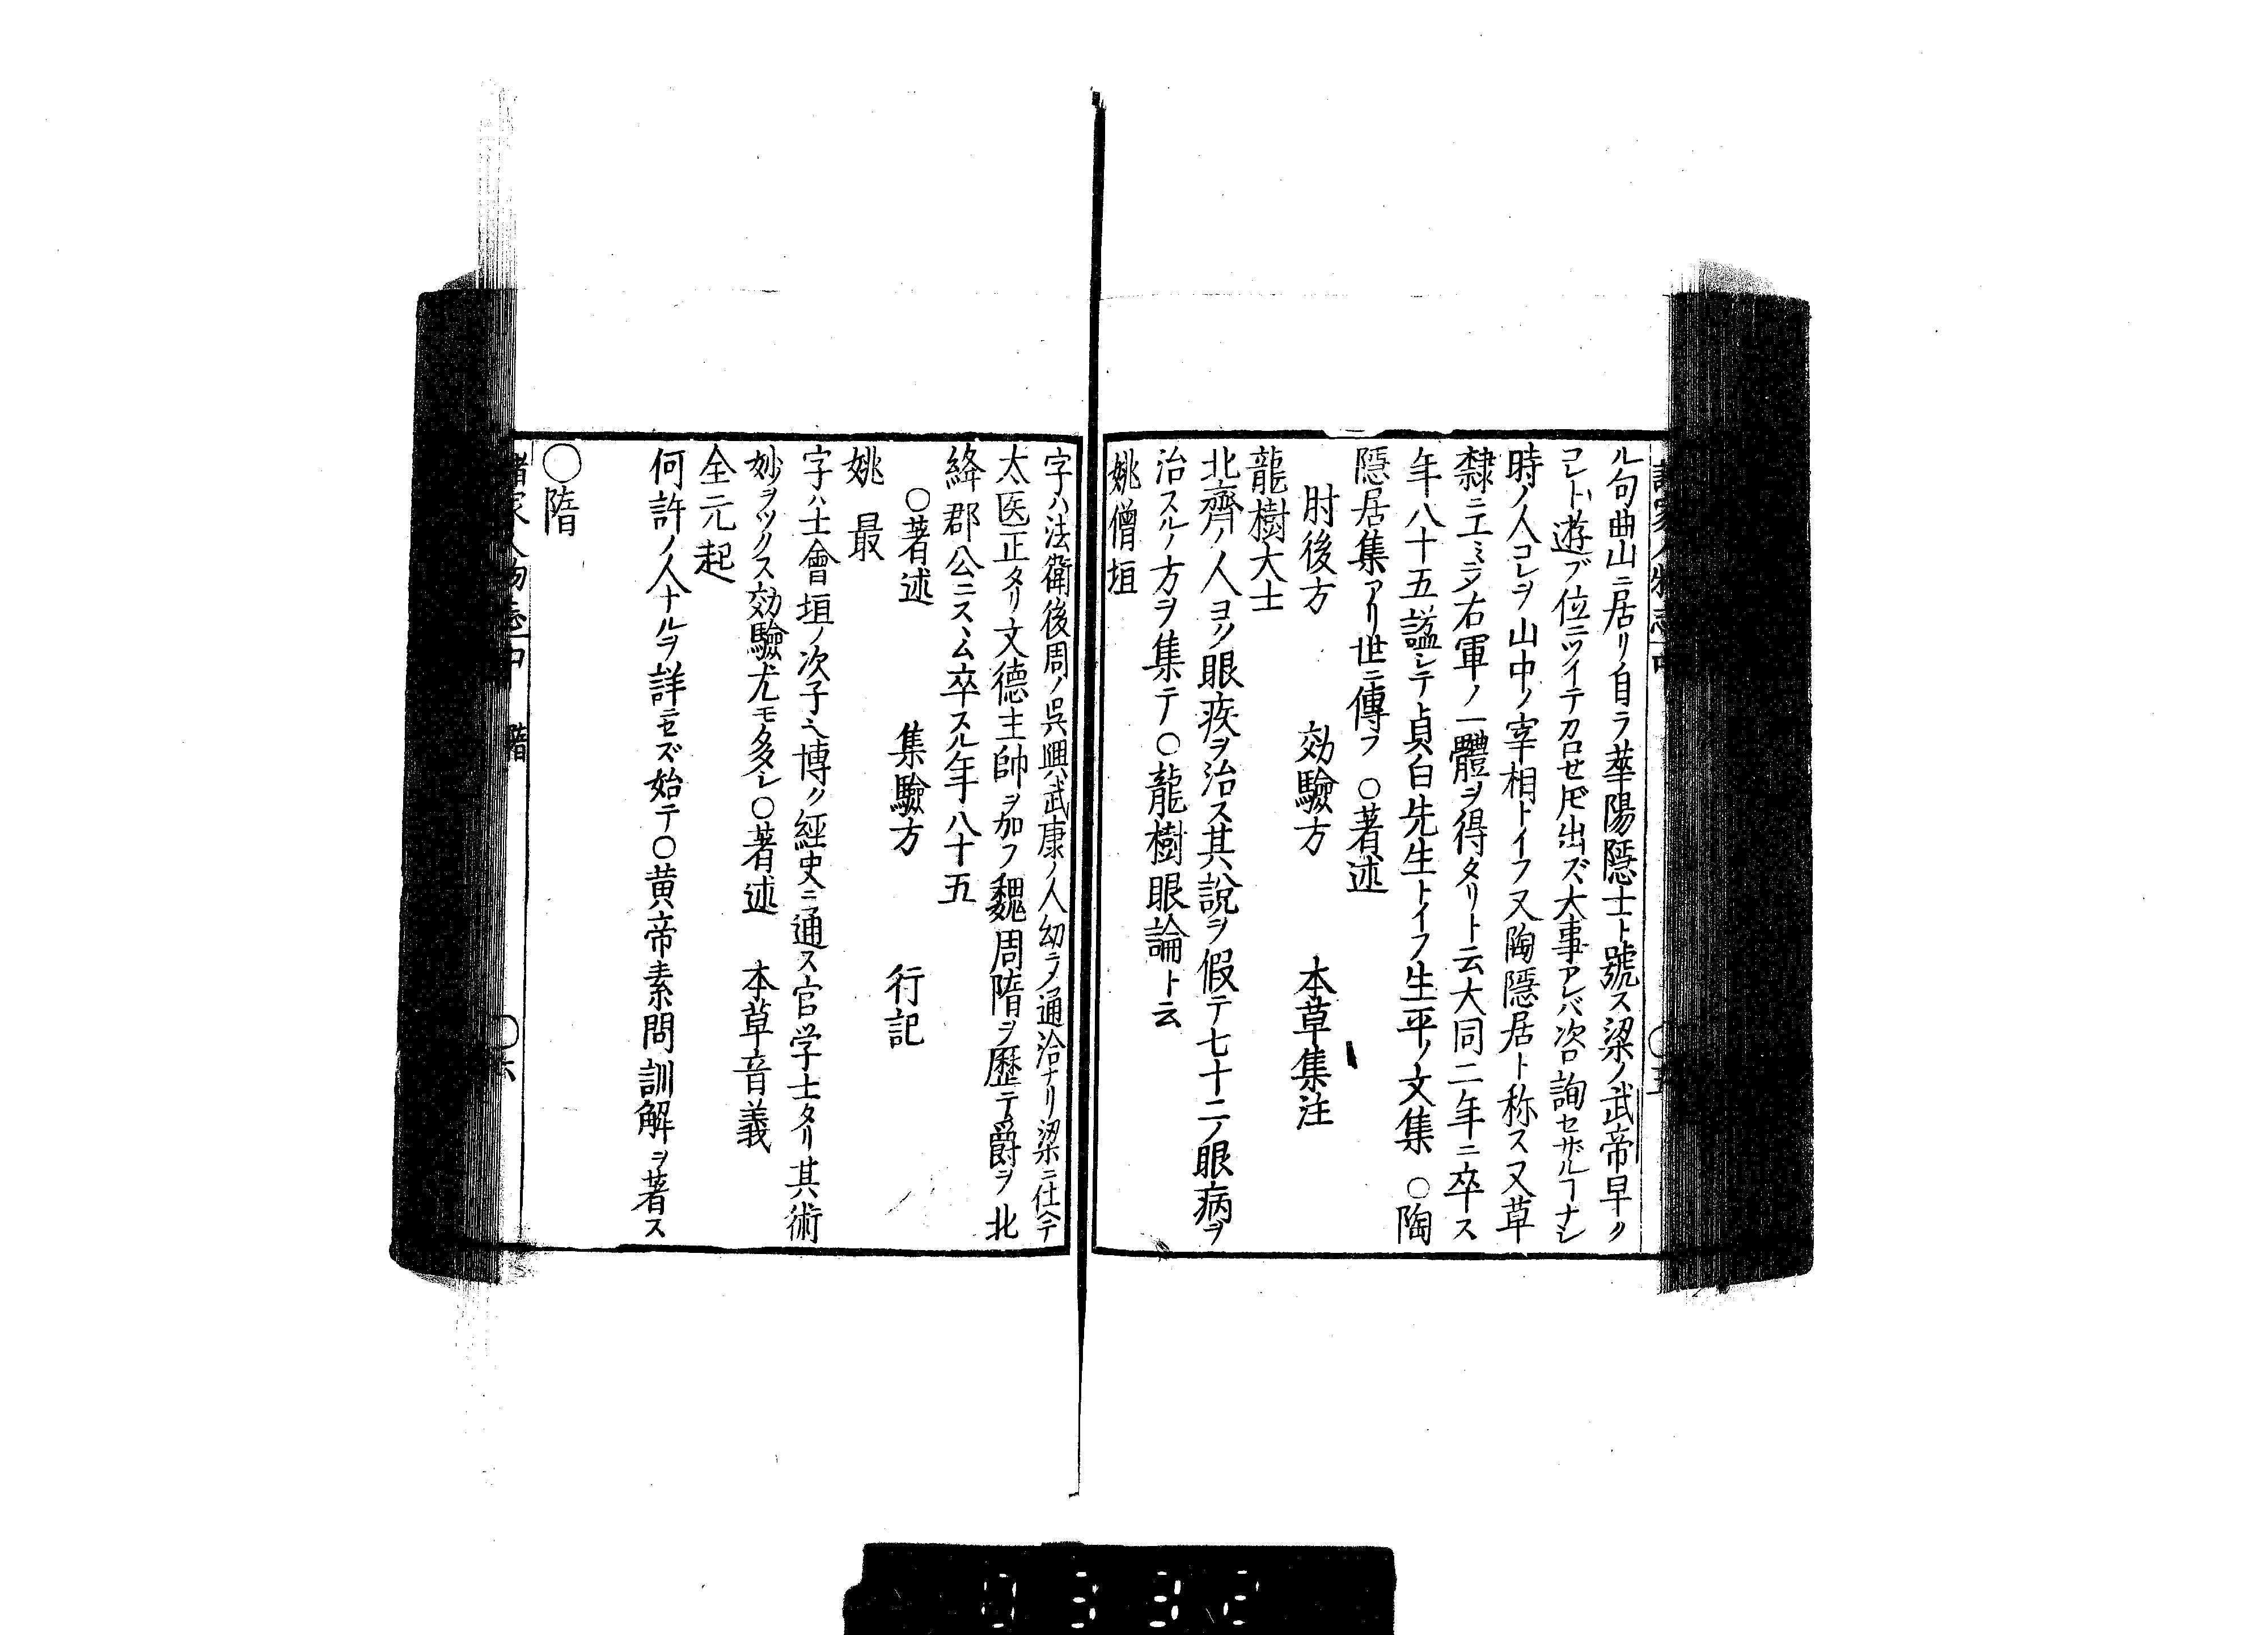 諸家人物志中
ル句曲山ニ居リ自ラ華陽隱士ト號ス梁ノ武帝早ク
コレト遊ブ位ニツイテ召セ𪜈出ズ大事アレバ必咨詢セザルヿナシ
時ノ人コレヲ山中ノ宰相トイフ又陶隱居ト称ス又草
隸ニ工ミニ乄右軍ノ一體ヲ得タリト云大同二年ニ卒ス
年八十五謚シテ貞白先生トイフ生平ノ文集 ○陶
隱居集アリ世ニ傳フ ○著述
肘後方 効驗方 本草集注
龍樹大士
北齊ノ人ヨク眼疾ヲ治ス其説ヲ假テ七十二ノ眼病ヲ
治スルノ方ヲ集テ○龍樹眼論ト云
姚僧垣
字ハ法衛後周ノ呉興武康ノ人幼ヨリ通洽ナリ梁ニ仕ヘテ
太医正タリ文德主帥ヲ加フ魏周隋ヲ歷テ爵ヲ北
絳郡公ニスヽム卒スル年八十五
○著述 集驗方 行記
姚 最
字ハ士會垣ノ次子ニ乄博ク經史ニ通ス官学士タリ其術
妙ヲツクス効驗尤モ多シ○著述 本草音義
全元起
何許ノ人ナルヲ詳ニセズ始テ○黄帝素問訓解ヲ著ス
○隋
諸家人物志中 隋 ○六